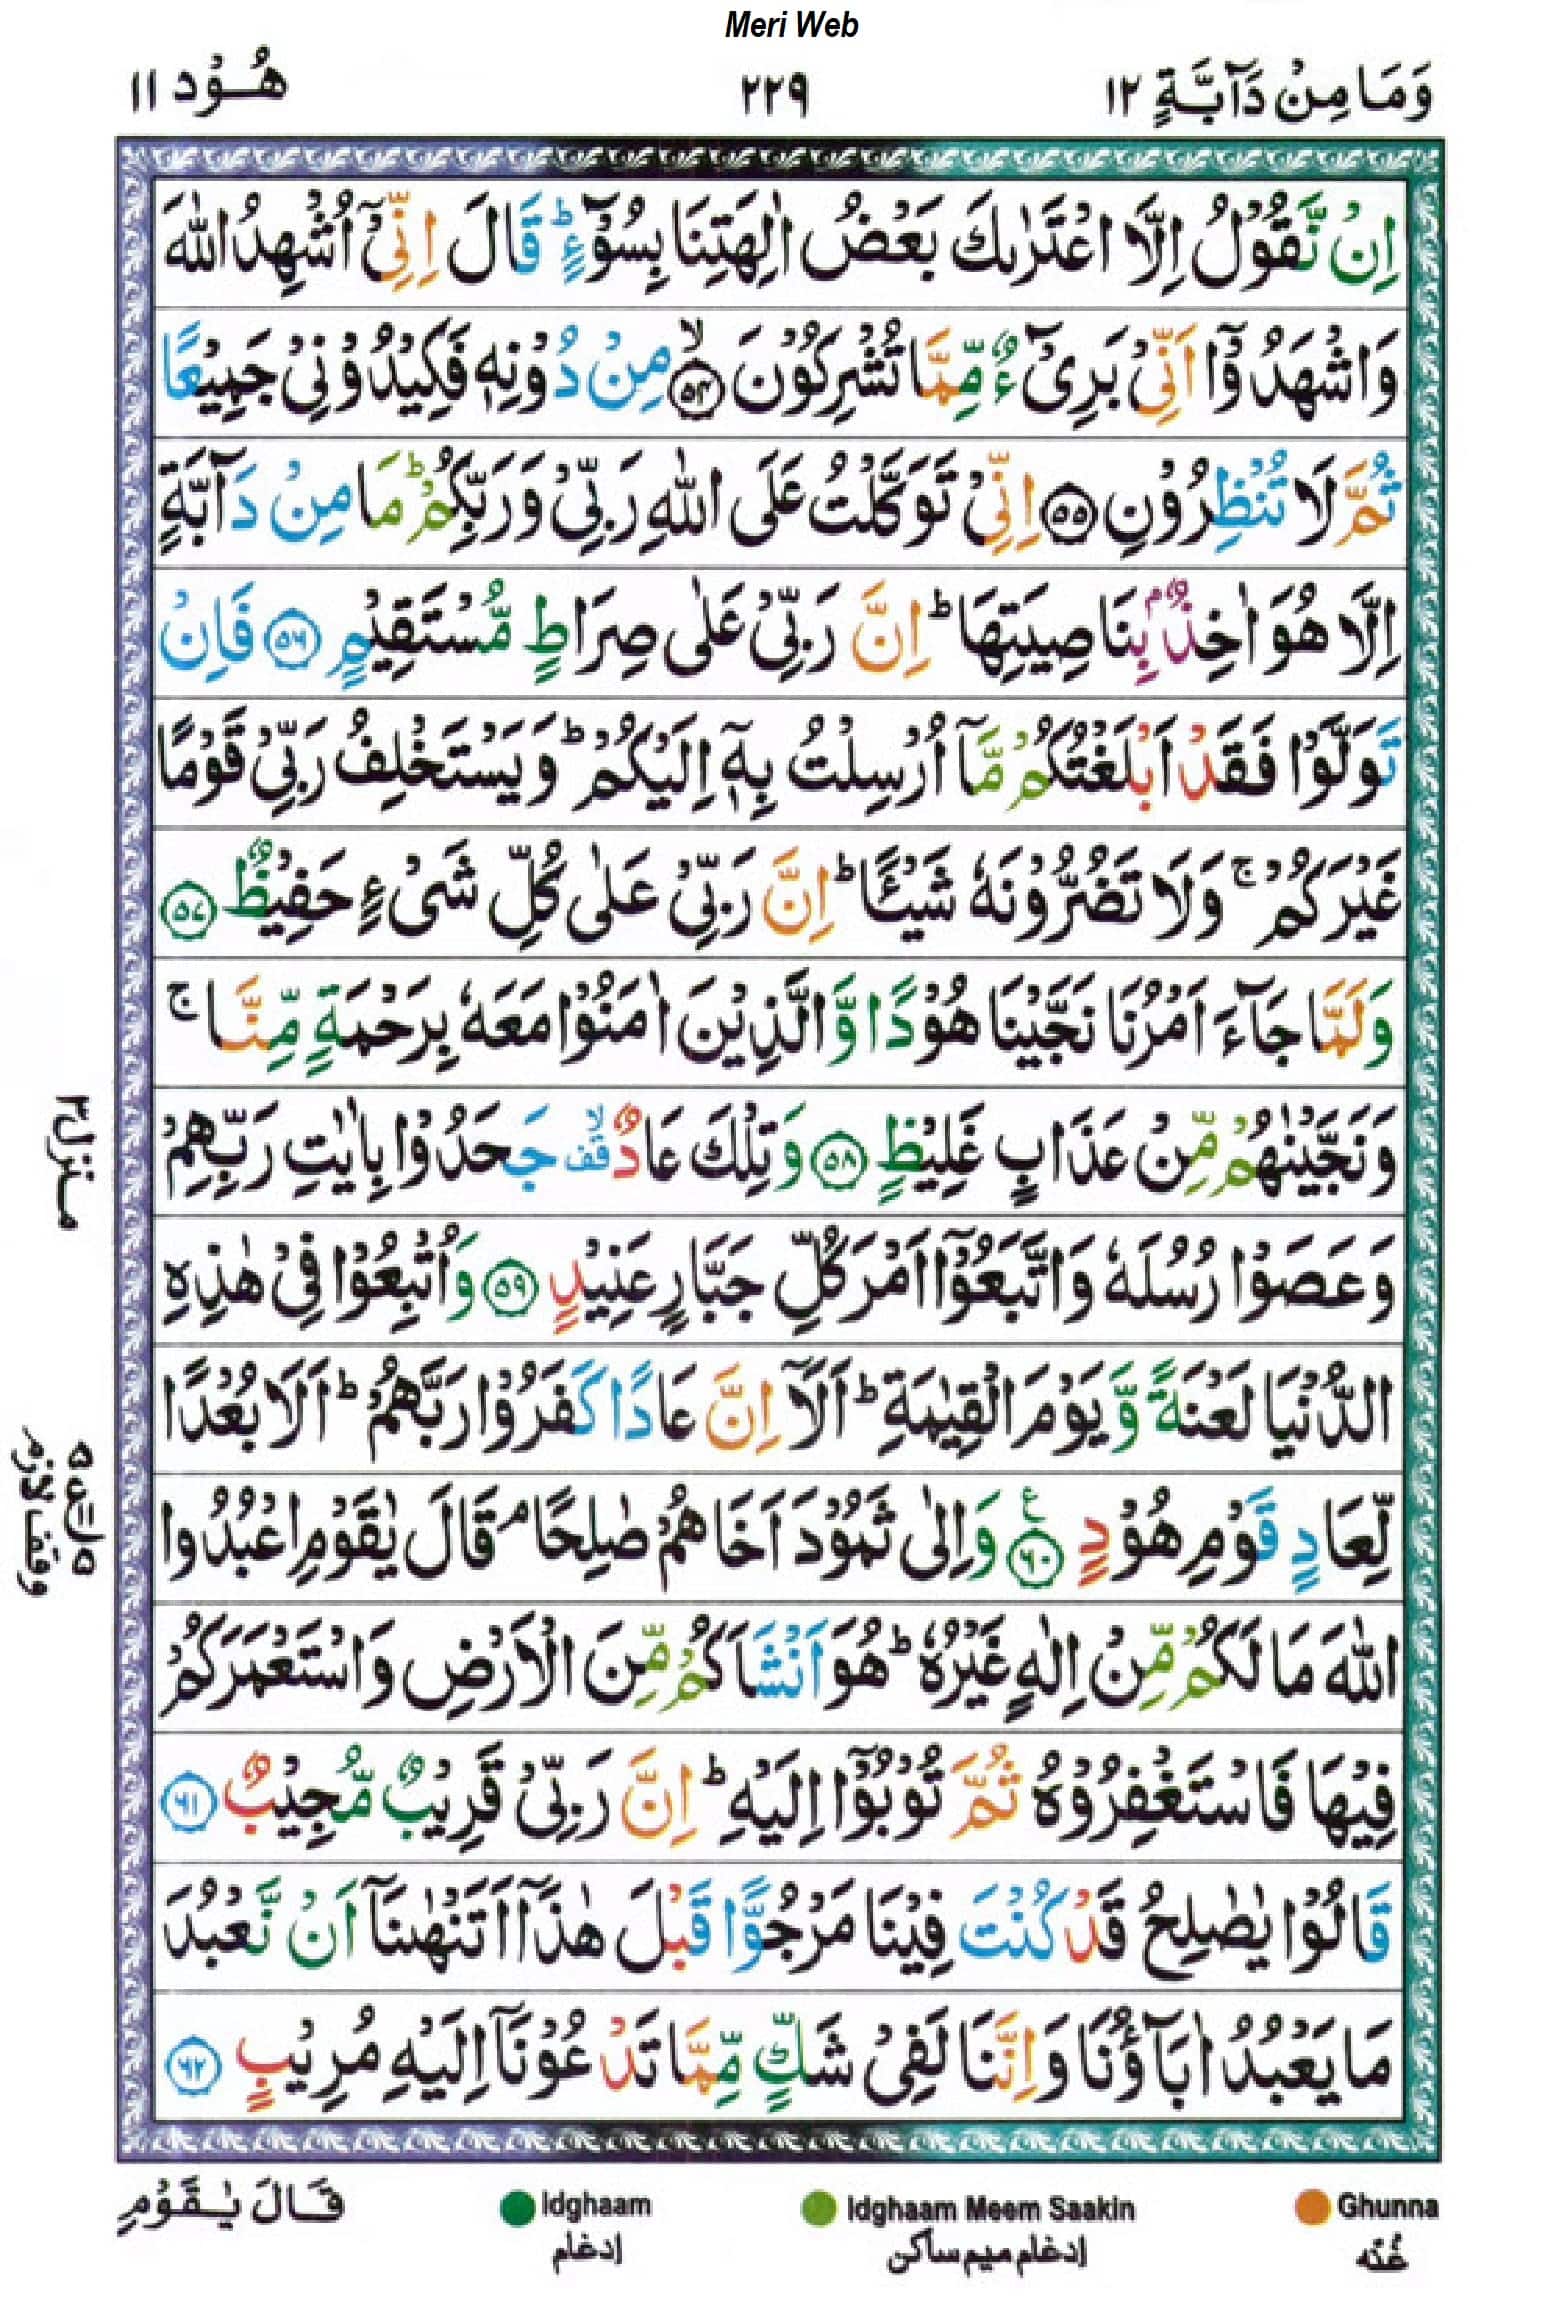 Meri Web
وَمَا مِنْ دَآبَّةٍ ١٢
٢٢٩
هُوْد ١١
اِنْ نَّقُوْلُ اِلَّا اعْتَرٰىكَ بَعْضُ اٰلِهَتِنَا بِسُوْٓءٍ ؕ قَالَ اِنِّىْۤ اُشْهِدُ اللّٰهَ
وَاشْهَدُوْۤا اَنِّىْ بَرِىْٓءٌ مِّمَّا تُشْرِكُوْنَ ۙ‏﴿۵۴﴾ مِنْ دُوْنِهٖ فَكِيْدُوْنِىْ جَمِيْعًا
ثُمَّ لَا تُنْظِرُوْنِ ﴿۵۵﴾ اِنِّىْ تَوَكَّلْتُ عَلَى اللّٰهِ رَبِّىْ وَرَبِّكُمْ ؕ مَا مِنْ دَآبَّةٍ
اِلَّا هُوَ اٰخِذٌۢ بِنَاصِيَتِهَا ؕ اِنَّ رَبِّىْ عَلٰى صِرَاطٍ مُّسْتَقِيْمٍ ﴿۵۶﴾ فَاِنْ
تَوَلَّوْا فَقَدْ اَبْلَغْتُكُمْ مَّاۤ اُرْسِلْتُ بِهٖۤ اِلَيْكُمْ ؕ وَيَسْتَخْلِفُ رَبِّىْ قَوْمًا
غَيْرَكُمْ ۚ وَلَا تَضُرُّوْنَهٗ شَيْـًٔا ؕ اِنَّ رَبِّىْ عَلٰى كُلِّ شَىْءٍ حَفِيْظٌ ﴿۵۷﴾
وَلَمَّا جَآءَ اَمْرُنَا نَجَّيْنَا هُوْدًا وَّالَّذِيْنَ اٰمَنُوْا مَعَهٗ بِرَحْمَةٍ مِّنَّا ۚ
وَنَجَّيْنٰهُمْ مِّنْ عَذَابٍ غَلِيْظٍ ﴿۵۸﴾ وَتِلْكَ عَادٌ ۙ قف جَحَدُوْا بِاٰيٰتِ رَبِّهِمْ
وَعَصَوْا رُسُلَهٗ وَاتَّبَعُوْۤا اَمْرَ كُلِّ جَبَّارٍ عَنِيْدٍ ﴿۵۹﴾ وَاُتْبِعُوْا فِىْ هٰذِهِ
الدُّنْيَا لَعْنَةً وَّيَوْمَ الْقِيٰمَةِ ؕ اَلَاۤ اِنَّ عَادًا كَفَرُوْا رَبَّهُمْ ؕ اَلَا بُعْدًا
لِّعَادٍ قَوْمِ هُوْدٍ ﴿۶۰﴾ ع وَاِلٰى ثَمُوْدَ اَخَاهُمْ صٰلِحًا ۘ قَالَ يٰقَوْمِ اعْبُدُوا
اللّٰهَ مَا لَكُمْ مِّنْ اِلٰهٍ غَيْرُهٗ ؕ هُوَ اَنْشَاَكُمْ مِّنَ الْاَرْضِ وَاسْتَعْمَرَكُمْ
فِيْهَا فَاسْتَغْفِرُوْهُ ثُمَّ تُوْبُوْۤا اِلَيْهِ ؕ اِنَّ رَبِّىْ قَرِيْبٌ مُّجِيْبٌ ﴿۶۱﴾
قَالُوْا يٰصٰلِحُ قَدْ كُنْتَ فِيْنَا مَرْجُوًّا قَبْلَ هٰذَاۤ اَتَنْهٰىنَاۤ اَنْ نَّعْبُدَ
مَا يَعْبُدُ اٰبَآؤُنَا وَاِنَّنَا لَفِىْ شَكٍّ مِّمَّا تَدْعُوْنَاۤ اِلَيْهِ مُرِيْبٍ ﴿۶۲﴾
منزل ۳
وقف لازم
قَالَ يٰقَوْمِ
Idghaam
إدغام
Idghaam Meem Saakin
إدغام ميم ساكن
Ghunna
غُنّه